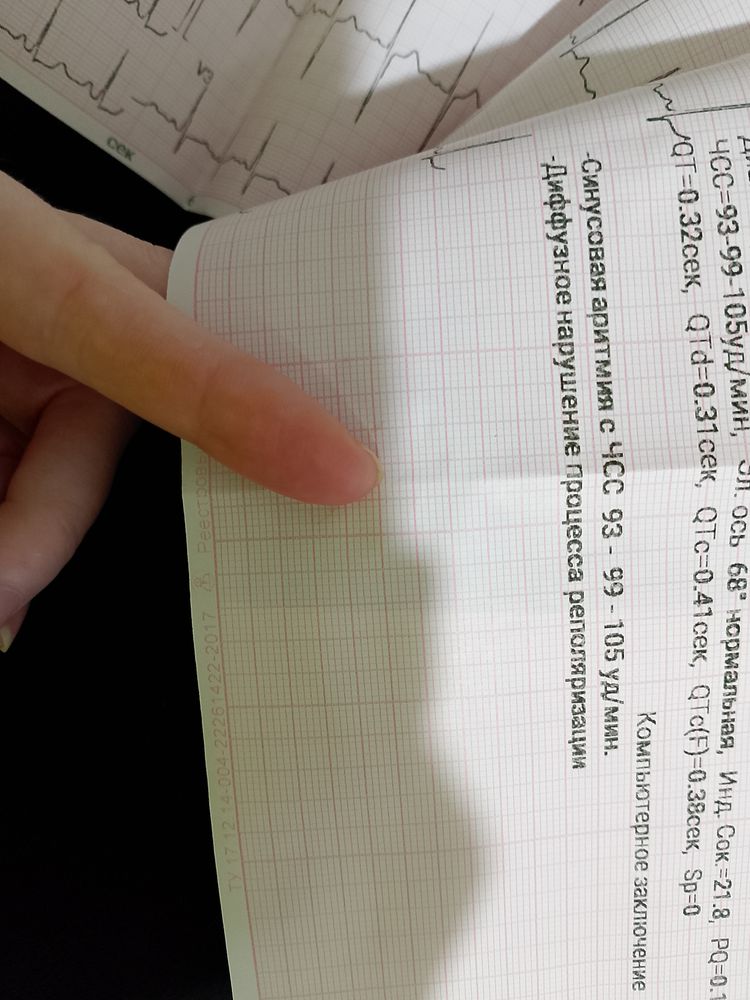 ЧСС=93-99-105уд/мин, Эл. ось 68° нормальная, Инд. Сок.=21.8, PQ=0.1
QT=0.32сек, QTd=0.31сек, QTc=0.41сек, QTc(F)=0.38сек, Sp=0
Компьютерное заключение
-Синусовая аритмия с ЧСС 93 - 99 - 105 уд/мин.
-Диффузное нарушение процесса реполяризации
ТУ 17.12.14-004-22261422-2017
V3
сек